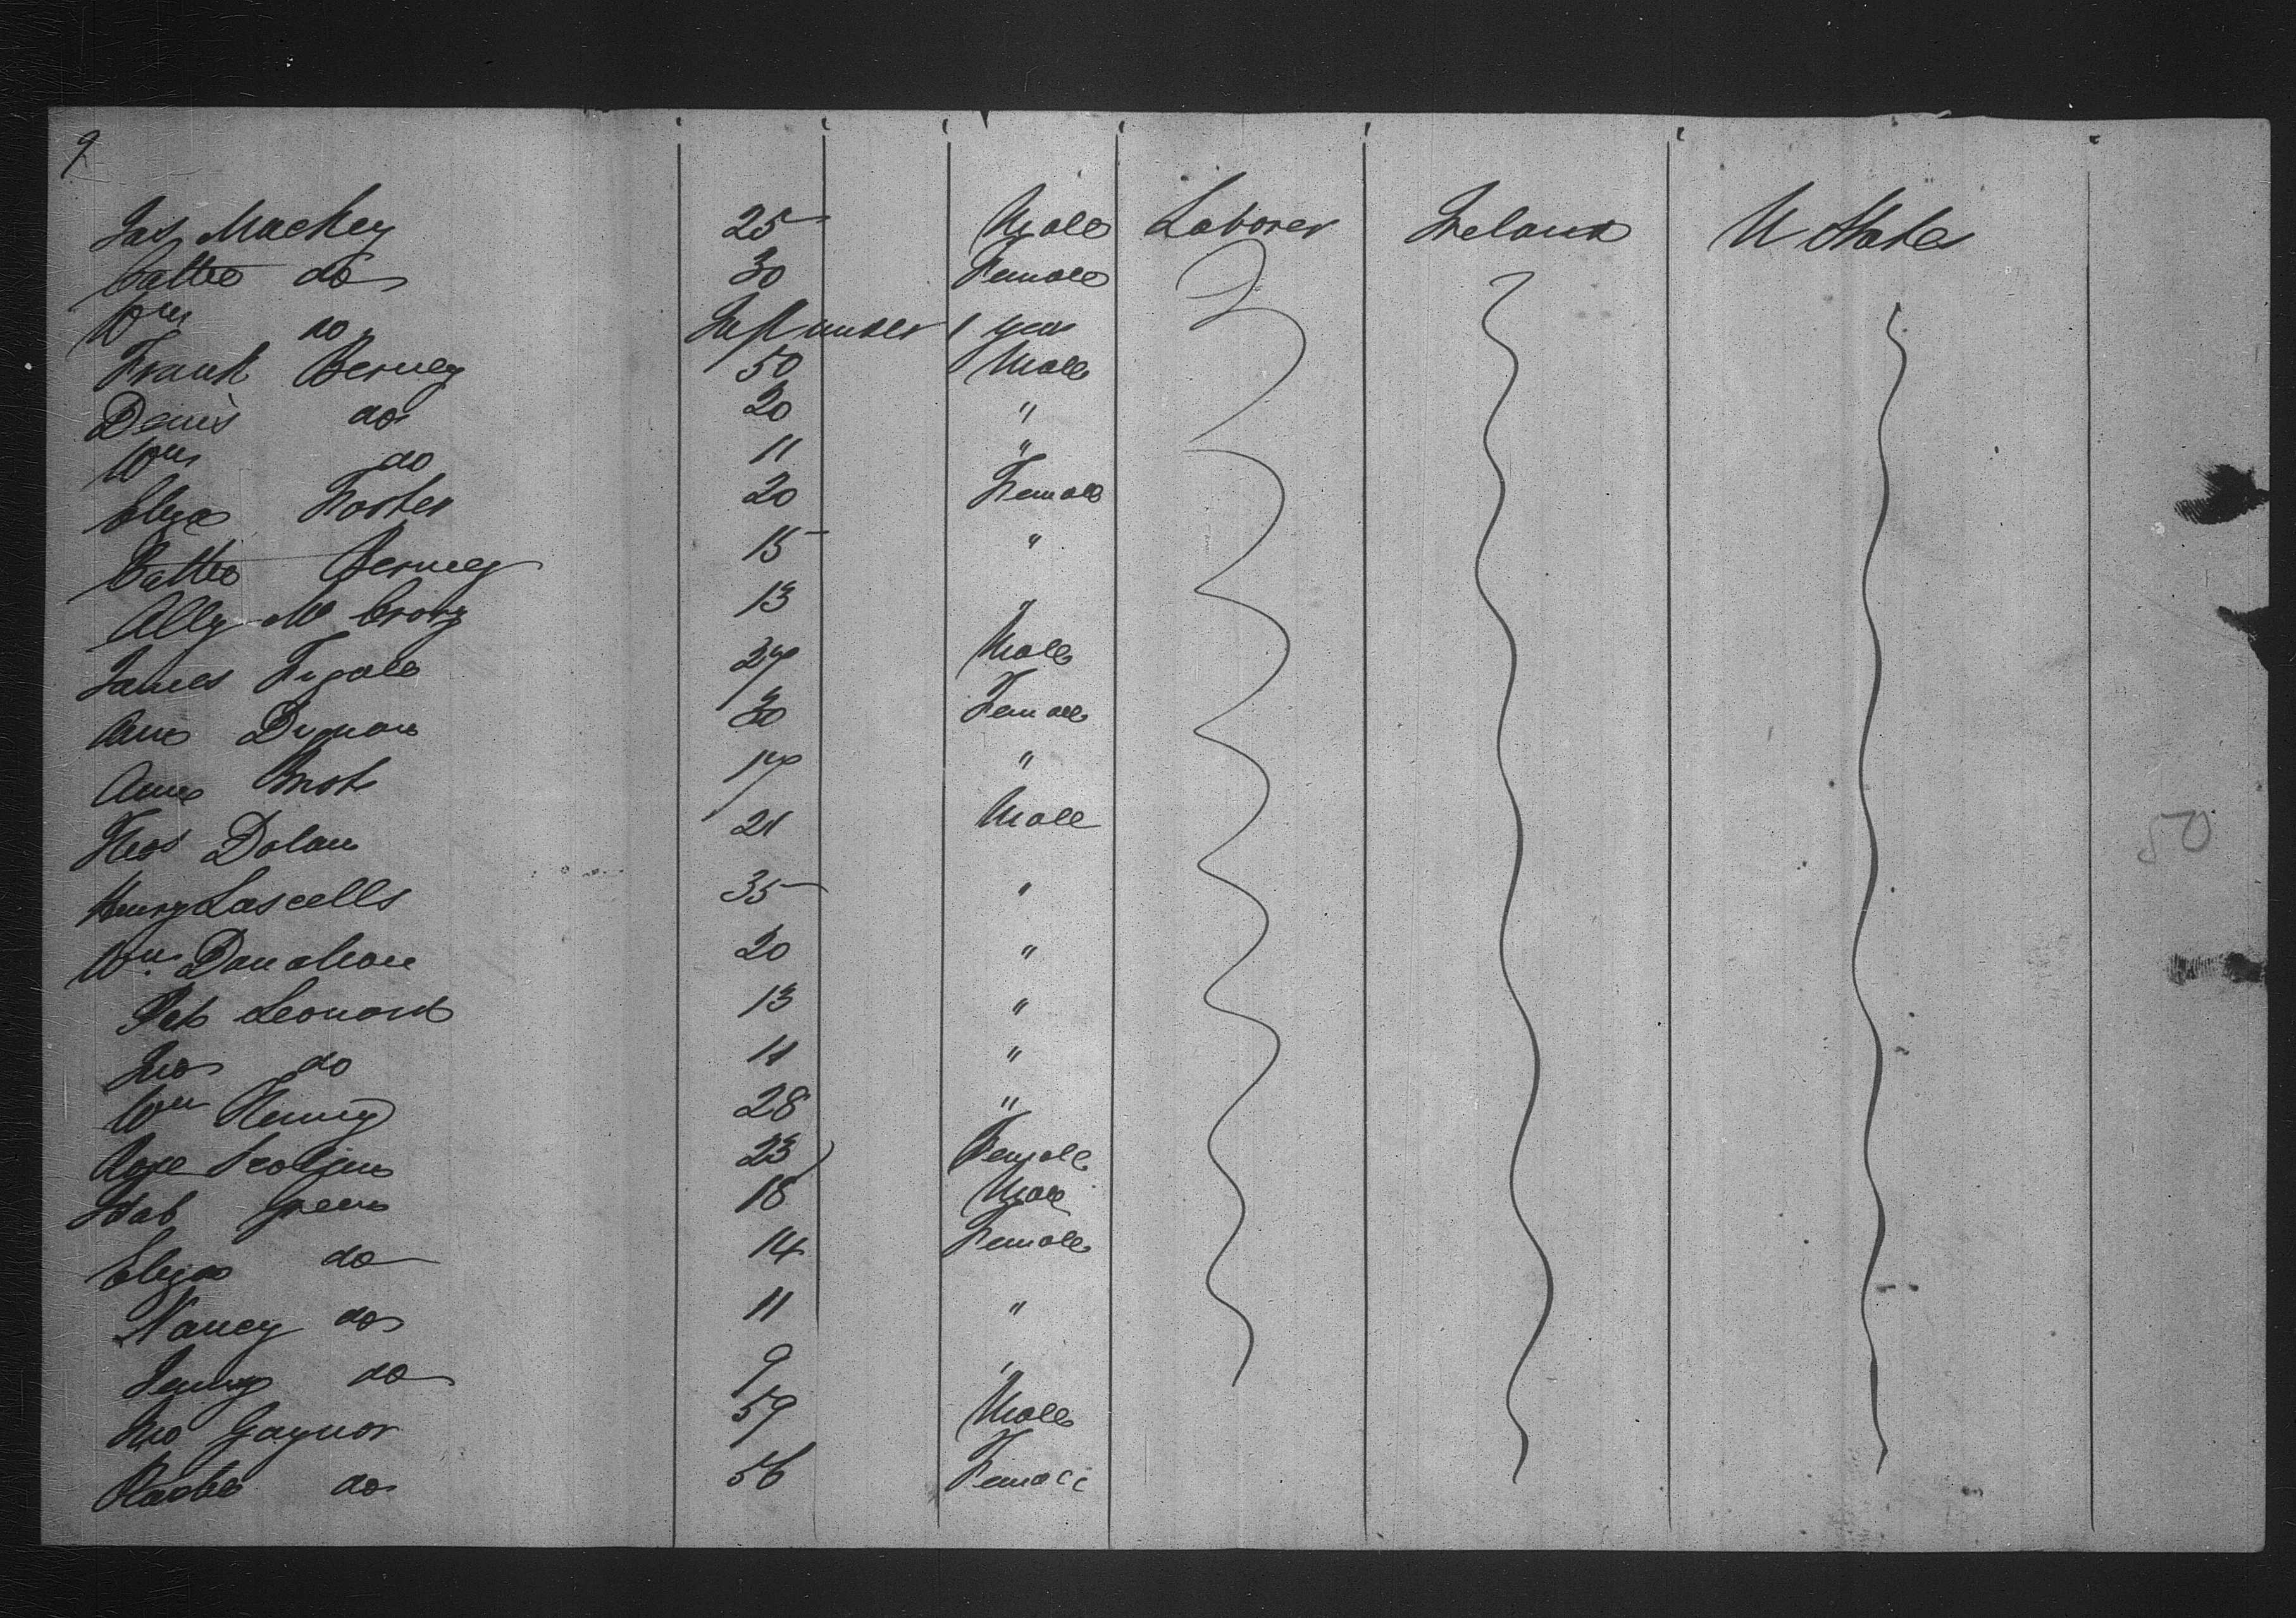 9
Jas Mackey 25 Male Laborer Ireland U States
Cathe do 30 Female
Wm do Inft under 1 year
Frank Berney 50 Male
Denis do 20 "
Wm do 11 "
Eliza Foster 20 Female
Cathe Berney 15 "
Ally Mc Crory 13 "
James 27 Male
Ann 30 Female
Anne 17 "
Thos Dolan 21 Male
Henry Lascells 35 "
Wm Donahoe 20 "
Pat Leonard 13 "
Jno do 11 "
Wm Henry 28 "
Rose 23 Female
Green 18 Male
Eliza do 14 Female
Nancy do 11 "
Jenny do 9 "
Jno Gaynor 59 Male
do 56 Female
50